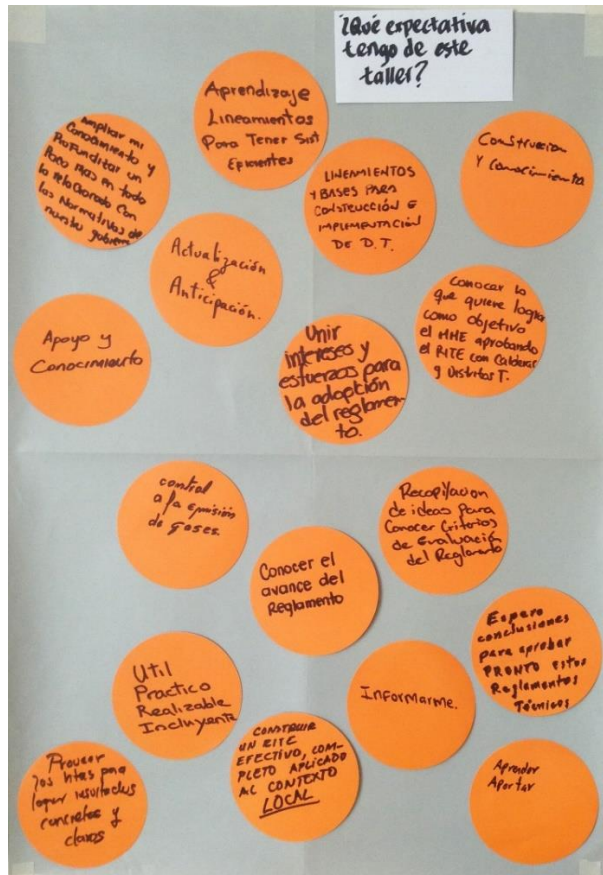 ¿Qué expectativa
tengo de este
taller?
Aprendizaje
Lineamientos
Para Tener Sist
Eficientes
Ampliar mi
Conocimiento y
Profundizar un
Poco Mas en todo
lo relacionado con
las Normativas de
nuestro gobierno
LINEAMIENTOS
Y BASES PARA
CONSTRUCCIÓN E
IMPLEMENTACIÓN
DE D.T.
Construccion
y conocimiento
Actualización
&
Anticipación.
Conocer lo
que quiere lograr
como objetivo
el MME aprobando
el RITE con Calderas
y Distritos T.
Apoyo y
Conocimiento
Unir
intereses y
esfuerzos para
la adopción
del reglamen-
to.
control
a la emisión
de gases.
Recopilacion
de ideas para
Conocer Criterios
de Evaluación
del Reglamento
Conocer el
avance del
Reglamento
Espero
conclusiones
para aprobar
PRONTO estos
Reglamentos
Técnicos
Util
Practico
Realizable
Incluyente
Informarme.
CONSTRUIR
UN RITE
EFECTIVO, COM-
PLETO APLICADO
AL CONTEXTO
LOCAL
Proveer
los hitos para
lograr resultados
concretos y
claros
Aprender
Aportar